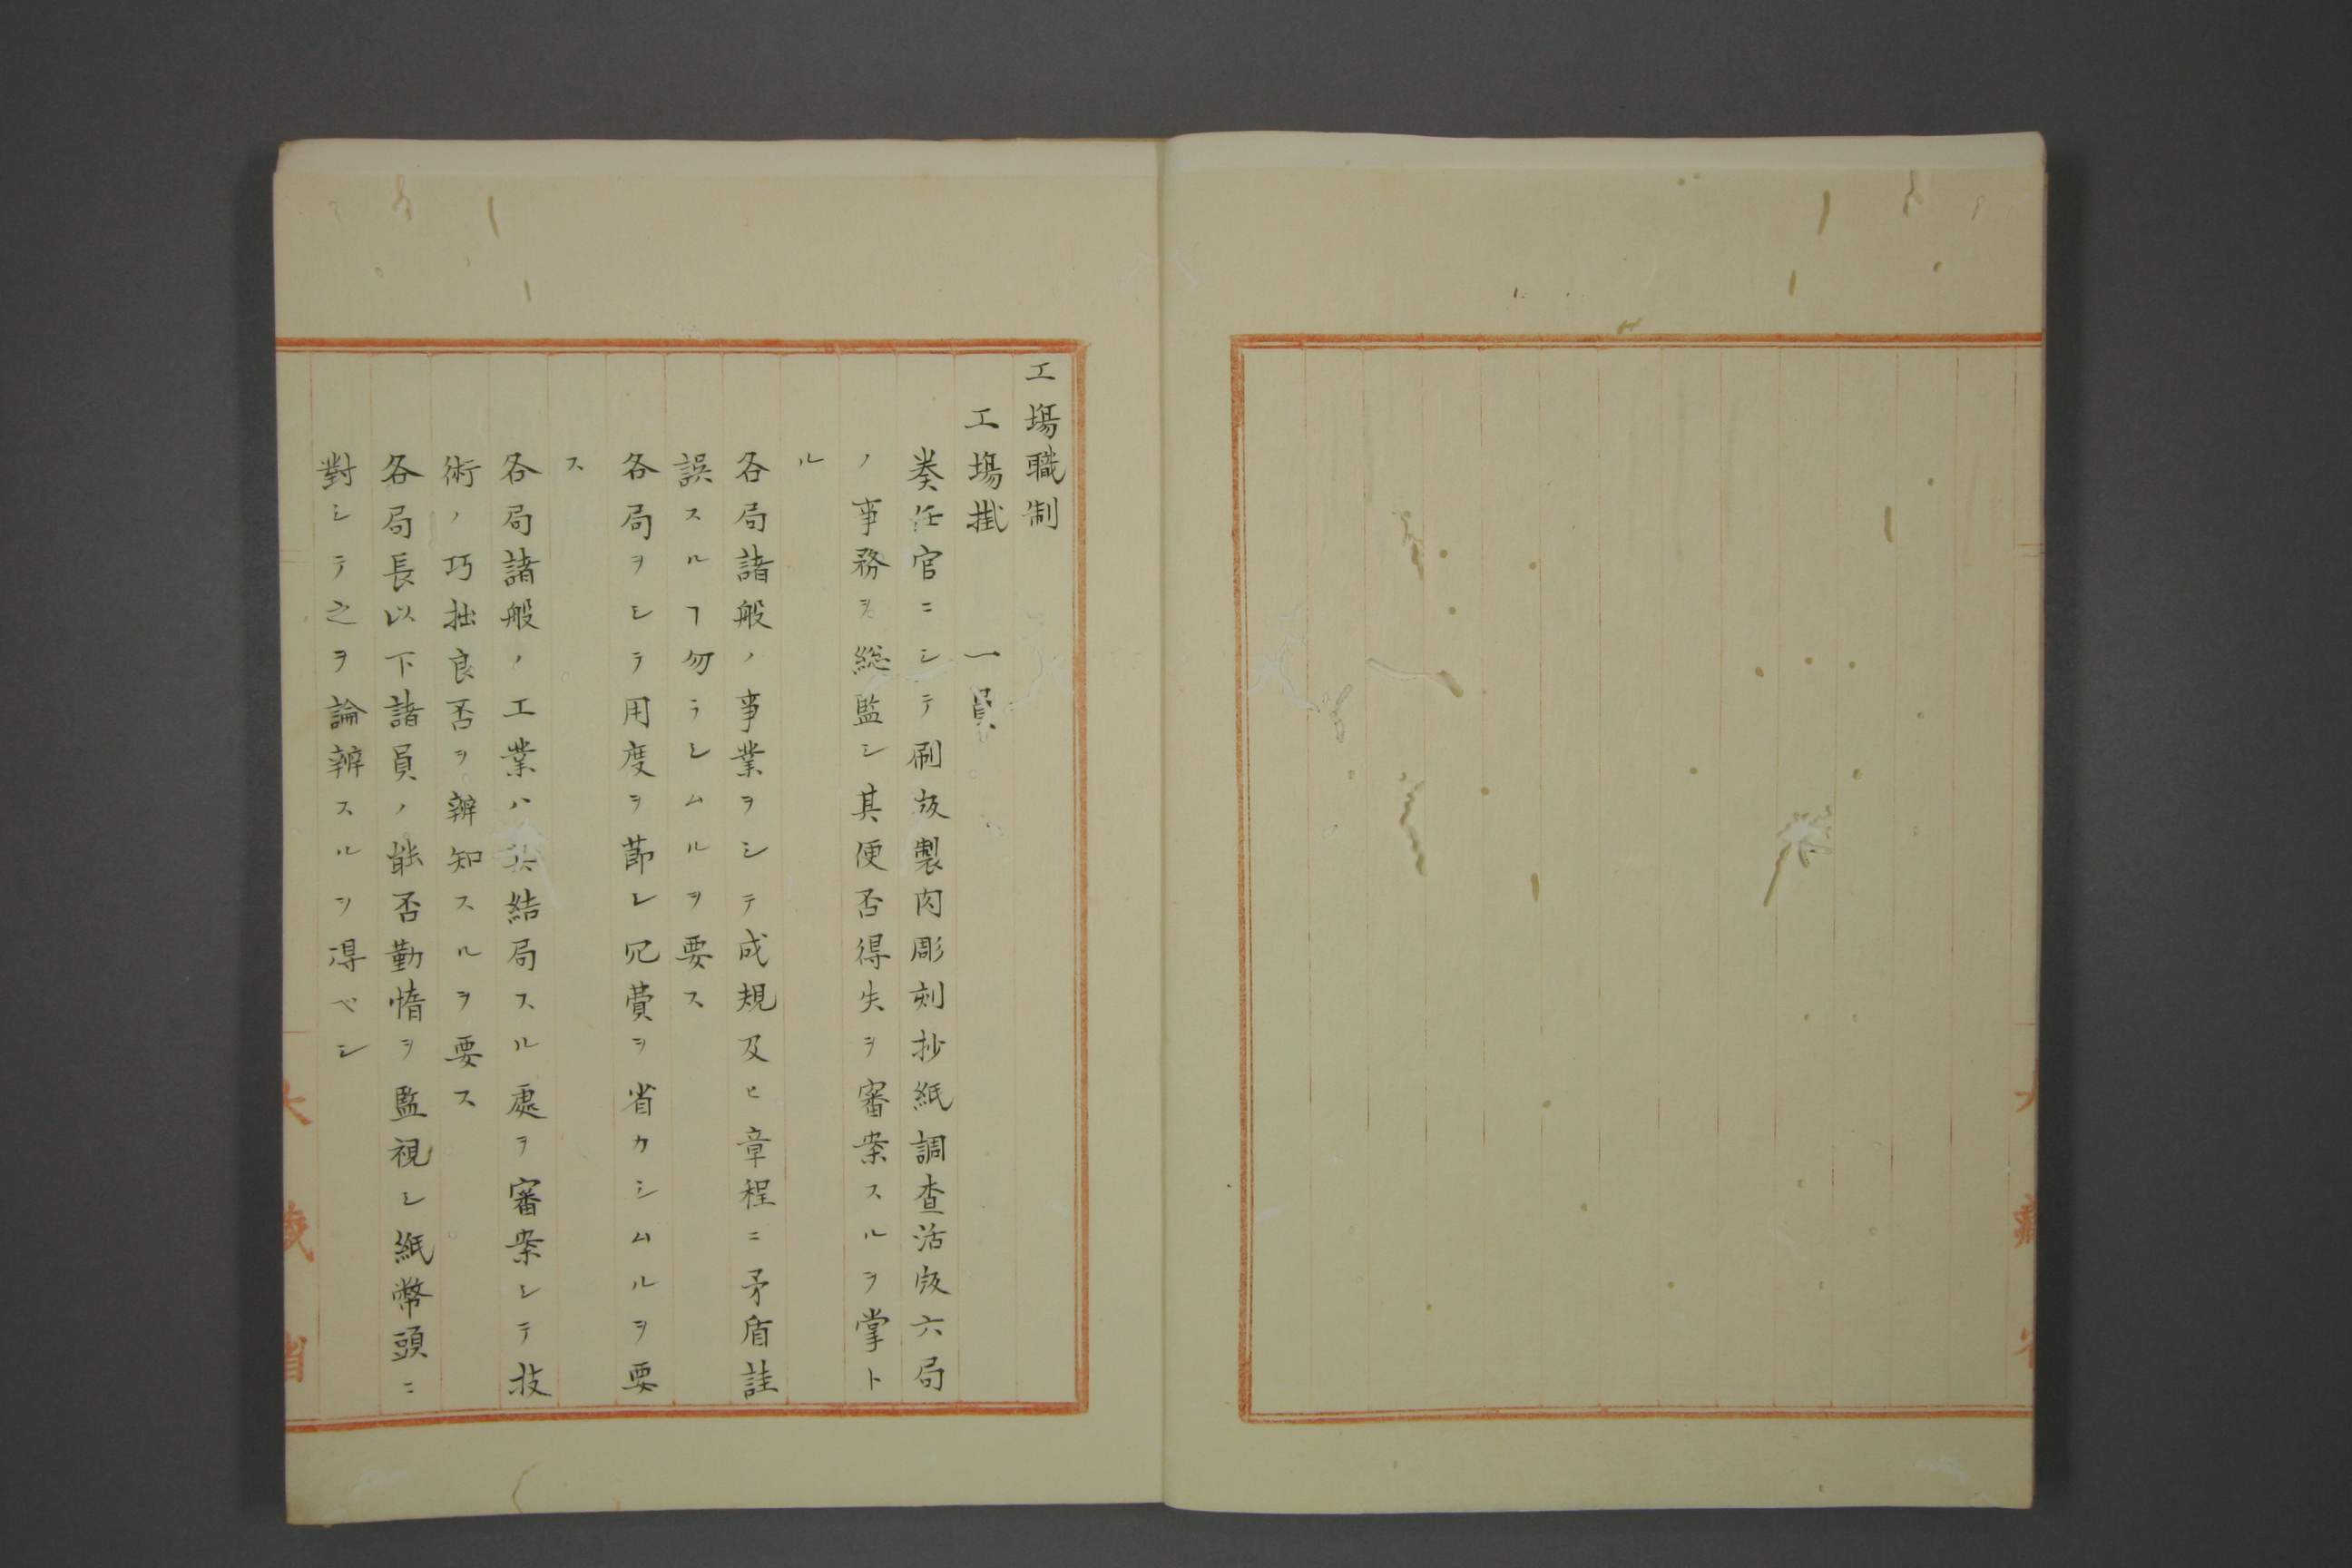 工塲職制
工塲掛　一員
奏任官ニシテ刷版製肉彫刻抄紙調査活版六局
ノ事務ヲ総監シ其便否得失ヲ審案スルヲ掌ト
ル
各局諸般ノ事業ヲシテ成規及ヒ章程ニ矛盾詿
誤スルヿ勿ラシムルヲ要ス
各局ヲシテ用度ヲ節シ冗費ヲ省カシムルヲ要
ス
各局諸般ノ工業ハ其結局スル處ヲ審案シテ技
術ノ巧拙良否ヲ辨知スルヲ要ス
各局長以下諸員ノ能否勤惰ヲ監視シ紙幣頭ニ
對シテ之ヲ論辨スルヲ淂ベシ
大藏省